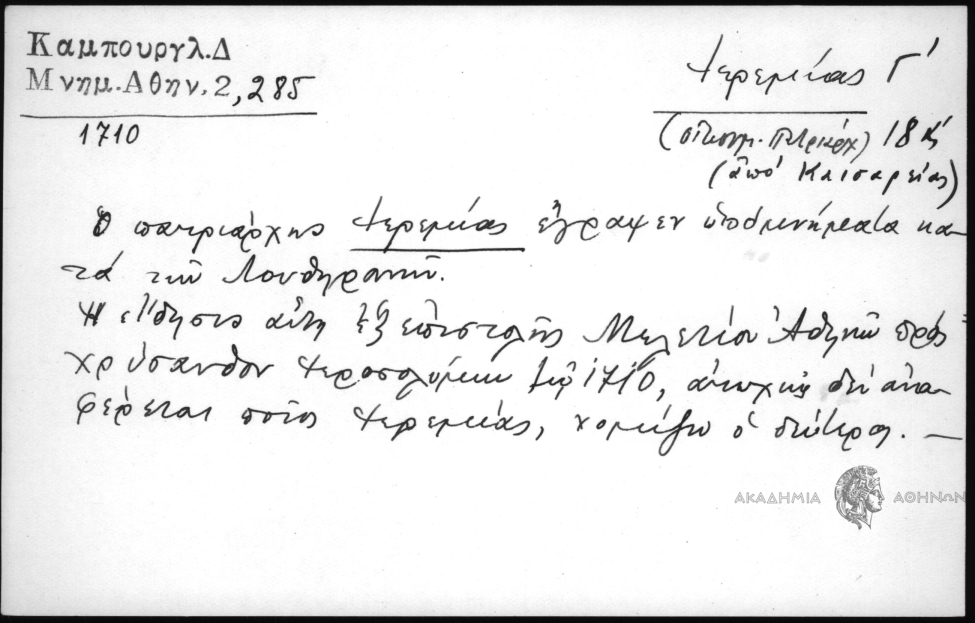 Καμπουργλ.Δ
Μνημ.Αθην.2,285
1710
Ἱερεμίας Γ΄
(οἰκουμ. Πατριάρχ) 18 αἰ
(ἀπό Καισαρείας)
Ὁ πατριάρχης Ἱερεμίας ἔγραψεν ὑπομνήματα κα-
τά τῶν Λουθηρανῶν.
Ἡ εἴδησις αὕτη ἐξ ἐπιστολῆς Μελετίου Ἀθηνῶν πρός
Χρύσανθον Ἱεροσολύμων τῷ 1710, ἀτυχῶς δέν ἀνα-
φέρεται ποῖος Ἱερεμίας, νομίζω ὁ δεύτερος. —
ΑΚΑΔΗΜΙΑ ΑΘΗΝΩΝ